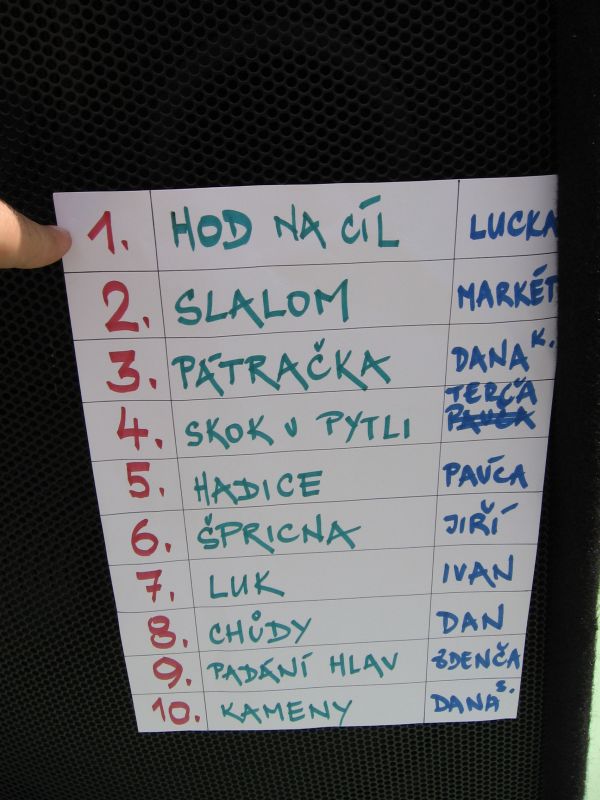 1. HOD NA CÍL LUCKA
2. SLALOM MARKÉT
3. PÁTRAČKA DANA K.
4. SKOK V PYTLI TERČA
5. HADICE PAVČA
6. ŠPRICNA JIŘÍ
7. LUK IVAN
8. CHŮDY DAN
9. PADÁNÍ HLAV ZDENČA
10. KAMENY DANA S.